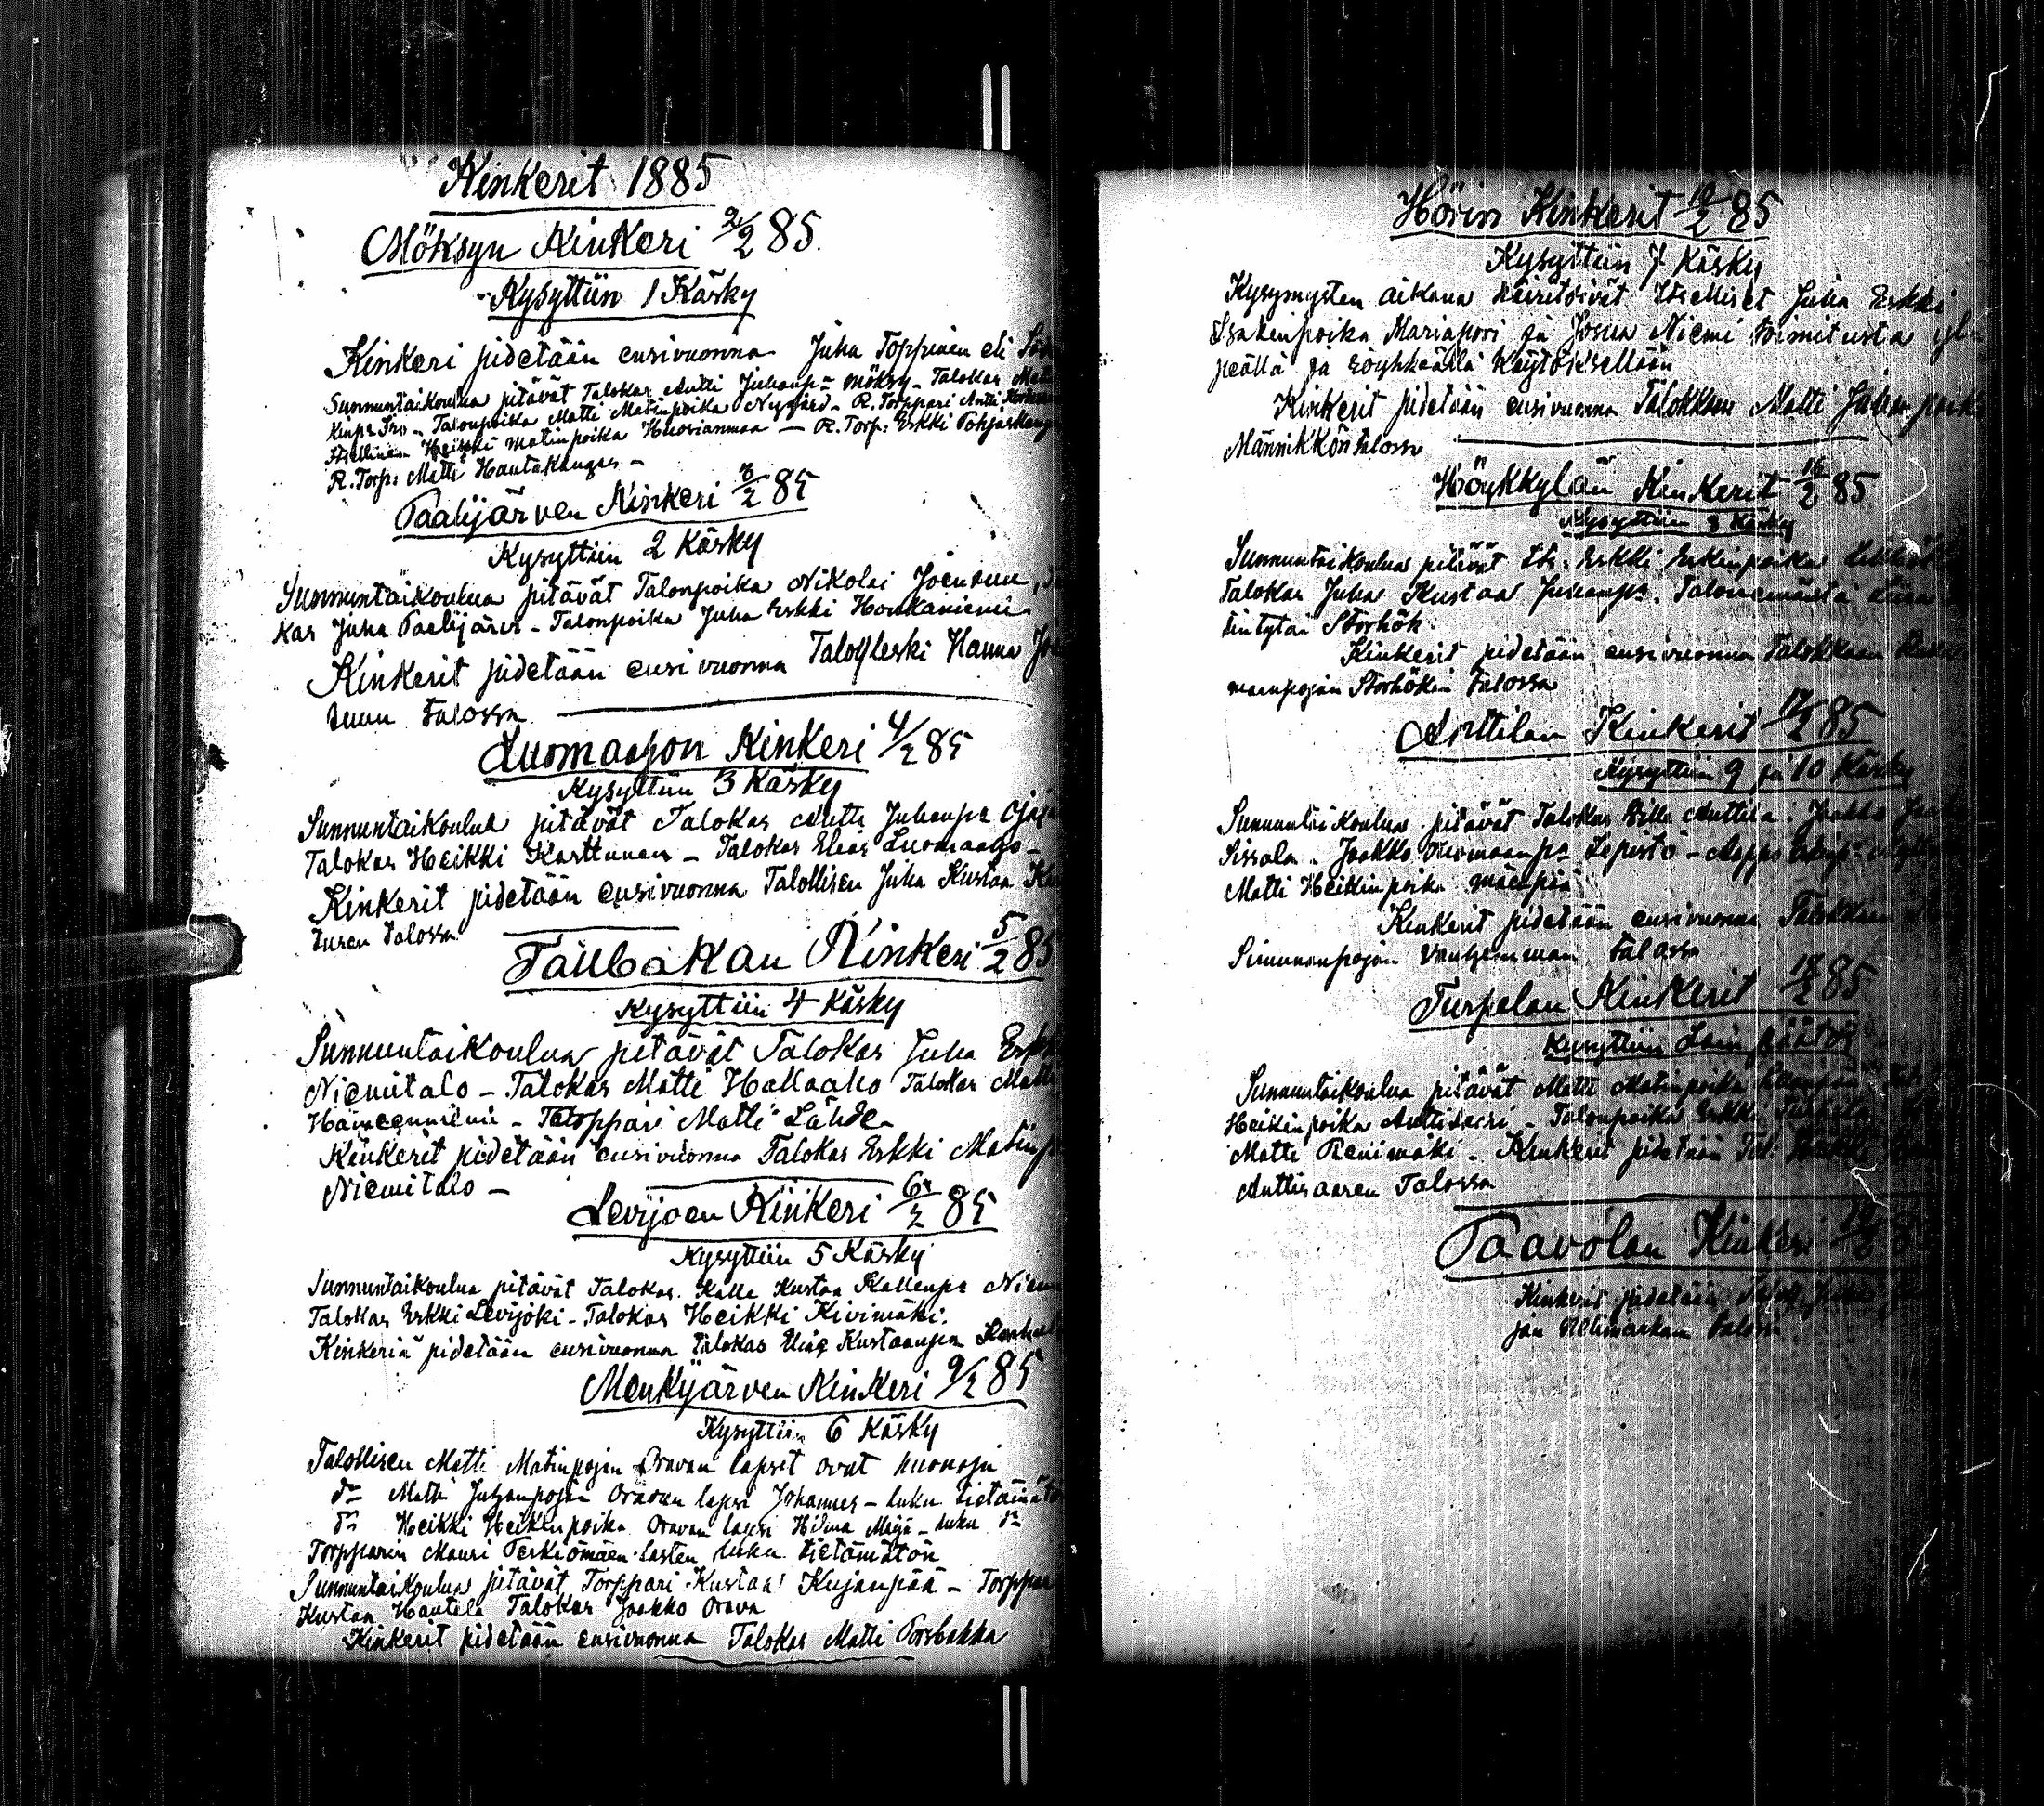 Kinkerit 1885
Möksyn Kinkeri 2/2 85.
Kysyttiin 1 Käsky
Kinkeri pidetään ensivuonna Juha Toppinen eli
Sunnuntaikoulua pitävät Talokas Antti Juhanp:a Möksy - Talokas
Talonpoika Matti Matinpoika Nygård - R. Torppari Antti
Heikki Matinpoika Huosianmaa - R. Torp: Erkki
R. Torp: Matti Hautakangas -
Paalijärven Kinkeri 3/2 85
Kysyttiin 2 Käsky
Sunnuntaikoulua pitävät Talonpoika Nikolai Joensuu,
kas Juha Paalijärvi - Talonpoika Juha Erkki Honkaniemi
Kinkerit pidetään ensivuonna Taloyleski Hanna
suun talossa
Luomaahon Kinkeri 4/2 85
Kysyttiin 3 Käsky
Sunnuntaikoulua pitävät Talokas Antti Juhanp:a
Talokas Heikki Karttunen - Talokas Elias Luomaaho -
Kinkerit pidetään ensivuonna Talollisen Juha Kustaa
tusen talossa
Tällbakan Kinkeri 5/2 85
Kysyttiin 4 Käsky
Sunnuntaikoulua pitävät Talokas Juha
Niemitalo - Talokas Matti Hallaaho Talokas
Hämeenniemi - Torppari Matti Lähde -
Kinkerit pidetään ensivuonna Talokas Erkki
Niemitalo -
Levijoen Kinkeri 6/2 85
Kysyttiin 5 Käsky
Sunnuntaikoulua pitävät Talokas Kalle Kustaa Kallenp:a
Talokas Erkki Levijoki - Talokas Heikki Kivimäki.
Kinkeriä pidetään ensivuonna talokas Elias Kustaanp:n
Menkijärven Kinkeri 9/2 85
Kysyttiin 6 Käsky
Talollisen Matti Matinpojan Oravan lapset ovat huonoja
d:o Matti Juhanpojan Oravan lapsi Johannes - luku
d:o Heikki Heikinpoika Oravan lapsi Hilma Maija - luku d:o
Torpparin Mauri Perkiömäen lasten luku tietämätön
Sunnuntaikoulua pitävät Torppari Kustaa Kujanpää -
Kustaa Hautala Talokas Jaakko Orava
Kinkerit pidetään ensivuonna Talokas Matti Porsbakka
Hörin Kinkerit 10/2 85
Kysyttiin 7 Käsky
Kysymysten aikana häiritsivät Itselliset Juha Erkki
Isakinpoika Mariapori ja Josua Niemi toimitusta
peällä ja röyhkeällä käytöksellään
Kinkerit pidetään ensivuonna Talokkaan Matti
Männikkön talossa
Höykkylän Kinkerit 16/2 85
Kysyttiin 8 Käsky
Sunnuntaikoulua pitävät Its: Erkki Erkinpoika
Talokas Juha Kustaa Juhanp:a. Talonemäntä
tintytär Storhök
Kinkerit pidetään ensivuonna Talokkaan
maanpojan Storhökin talossa
Anttilan Kinkerit 17/2 85
Kysyttiin 9 ja 10 Käsky
Sunnuntaikoulua pitävät Talokas Anttila. Jaakko
Sissala. Jaakko Tuomaanp:a Lepistö -
Matti Heikinpoika Mäenpää
Kinkerit pidetään ensivuonna Talokkaan
Simunanpojan Vanhemman talossa
Turpelan Kinkerit 18/2 85
Kysyttiin Lain päätös
Sunnuntaikoulua pitävät Matti Matinpoika
Heikinpoika Anttisaari - Talonpoika Erkki
Matti Renimäki - Kinkerit pidetään Tal:
Anttisaaren Talossa
Paavolan Kinkeri
Kinkerit pidetään
jan talossa